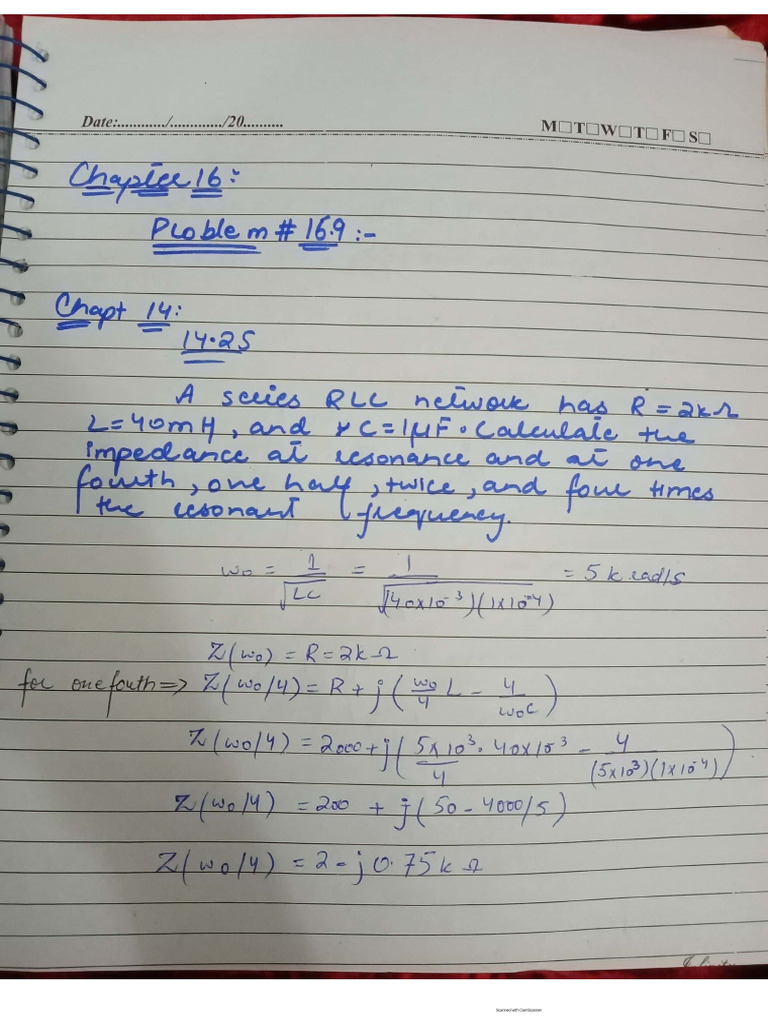 Date:............/............./20..........
M☐T☐W☐T☐F☐S☐
Chapter 16:
Problem # 16.9 :-
Chapt 14:
14.25
A series RLC network has R = 2kΩ
L = 40mH, and C = 1μF. Calculate the
impedance at resonance and at one
fourth, one half, twice, and four times
the resonant frequency.
ω₀ = 1/√LC = 1/√(40×10⁻³)(1×10⁻⁴) = 5 k rad/s
Z(ω₀) = R = 2kΩ
for one fouth => Z(ω₀/4) = R + j(ω₀/4 L - 4/ω₀C)
Z(ω₀/4) = 2000 + j(5×10³/4 · 40×10⁻³ - 4/(5×10³)(1×10⁻⁴))
Z(ω₀/4) = 200 + j(50 - 4000/5)
Z(ω₀/4) = 2 - j0.75kΩ
Scanned with CamScanner